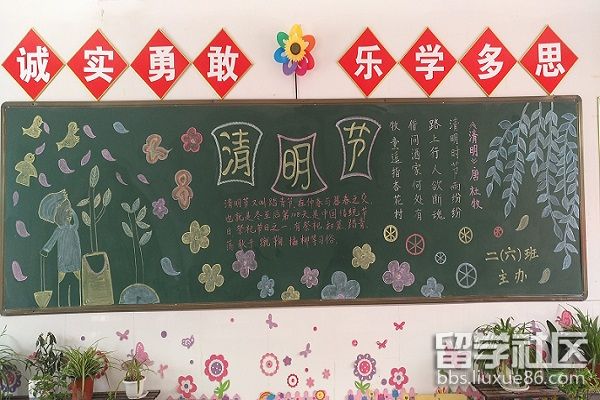 诚实勇敢 乐学多思
清明节
清明节又叫踏青节,在仲春与暮春之交,
也就是冬至后第108天。是中国传统节
日祭祀节日之一,有祭祀、扫墓、踏青、
荡秋千、蹴鞠、插柳等习俗。
《清明》唐杜牧
清明时节雨纷纷
路上行人欲断魂
借问酒家何处有
牧童遥指杏花村
二(六)班
主办
留学社区
bbs.liuxue86.com